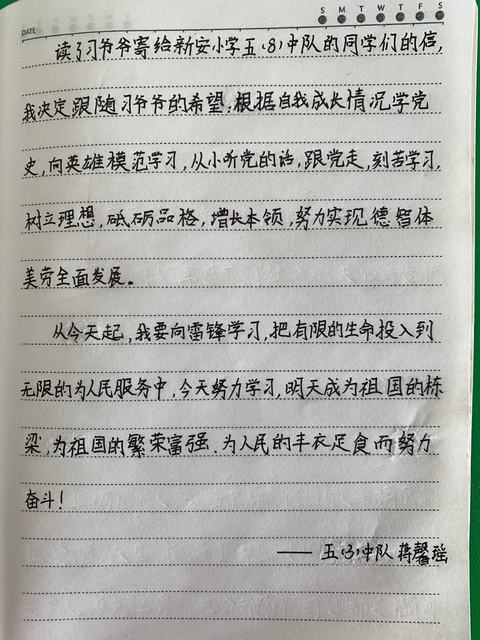 DATE
S M T W T F S
读了习爷爷寄给新安小学五(8)中队的同学们的信,
我决定跟随习爷爷的希望:根据自我成长情况学党
史,向英雄模范学习,从小听党的话,跟党走,刻苦学习,
树立理想,砥砺品格,增长本领,努力实现德智体
美劳全面发展。
从今天起,我要向雷锋学习,把有限的生命投入到
无限的为人民服务中,今天努力学习,明天成为祖国的栋
梁,为祖国的繁荣富强、为人民的丰衣足食而努力
奋斗!
—— 五(3)中队 蒋馨瑶